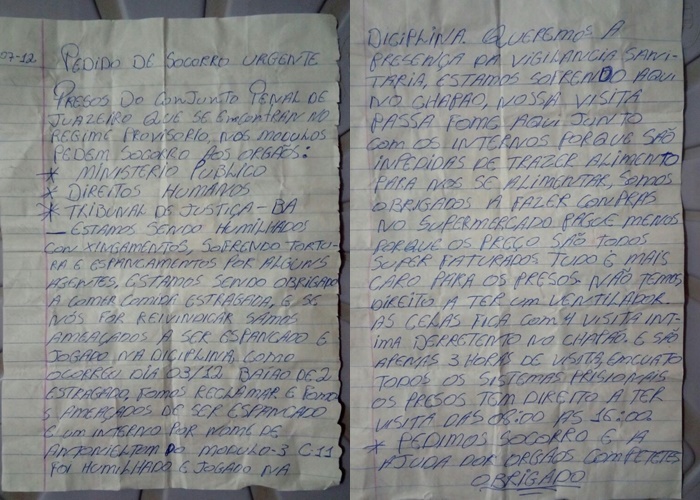 07-12 PEDIDO DE SOCORRO URGENTE
PRESOS DO CONJUNTO PENAL DE
JUAZEIRO QUE SE ENCONTRAN NO
REGIME PROVISORIO, NOS MODULOS
PEDEM SOCORRO AOS ORGÃOS:
* MINISTÉRIO PUBLICO
* DIREITOS HUMANOS
* TRIBUNAL DE JUSTIÇA - BA
— ESTAMOS SENDO HUMILHADOS
CON XINGAMENTOS, SOFRENDO TORTU-
RA E ESPANCAMENTOS POR ALGUNS
AGENTES, ESTAMOS SENDO OBRIGADO
A COMER COMIDA ESTRAGADA, E SE
NÓS FOR REIVINDICAR SAMOS
AMEAÇADOS A SER ESPANCADO E
JOGADO NA DICIPLINA, COMO
OCORREU DIA 03/12. BAIÃO DE 2
ESTRAGADO, FOMOS RECLAMAR E FOMO
S AMEAÇADOS DE SER ESPANCADO
E UM INTERNO POR NOME DE
DO MODULO-3 C-11
FOI HUMILHADO E JOGADO NA
DICIPLINA. QUEREMOS A
PRESENÇA DA VIGILANCIA SANI-
TARIA, ESTAMOS SOFRENDO AQUI
NO CHAPÃO, NOSSA VISITA
PASSA FOME AQUI JUNTO
COM OS INTERNOS PORQUE SÃO
INPEDIDAS DE TRAZER ALIMENTO
PARA NOS SE ALIMENTAR, SOMOS
OBRIGADOS A FAZER CONPRAS
NO SUPERMERCADO PAGUE MENOS
PORQUE OS PREÇO SÃO TODOS
SUPER FATURADOS TUDO E MAIS
CARO PARA OS PRESOS. NÃO TEMOS
DIREITO A TER UM VENTILADOR.
AS CELAS FICA COM 4 VISITA INT-
IMA DERRETENTO NO CHAPÃO. E SÃO
APENAS 3 HORAS DE VISITA, ENCUATO
TODOS OS SISTEMAS PRISIONAIS
OS PRESOS TEM DIREITO A TER
VISITA DAS 08:00 AS 16:00
* PEDIMOS SOCORRO E A
AJUDA DOR ORGÃOS COMPETETES
OBRIGADO